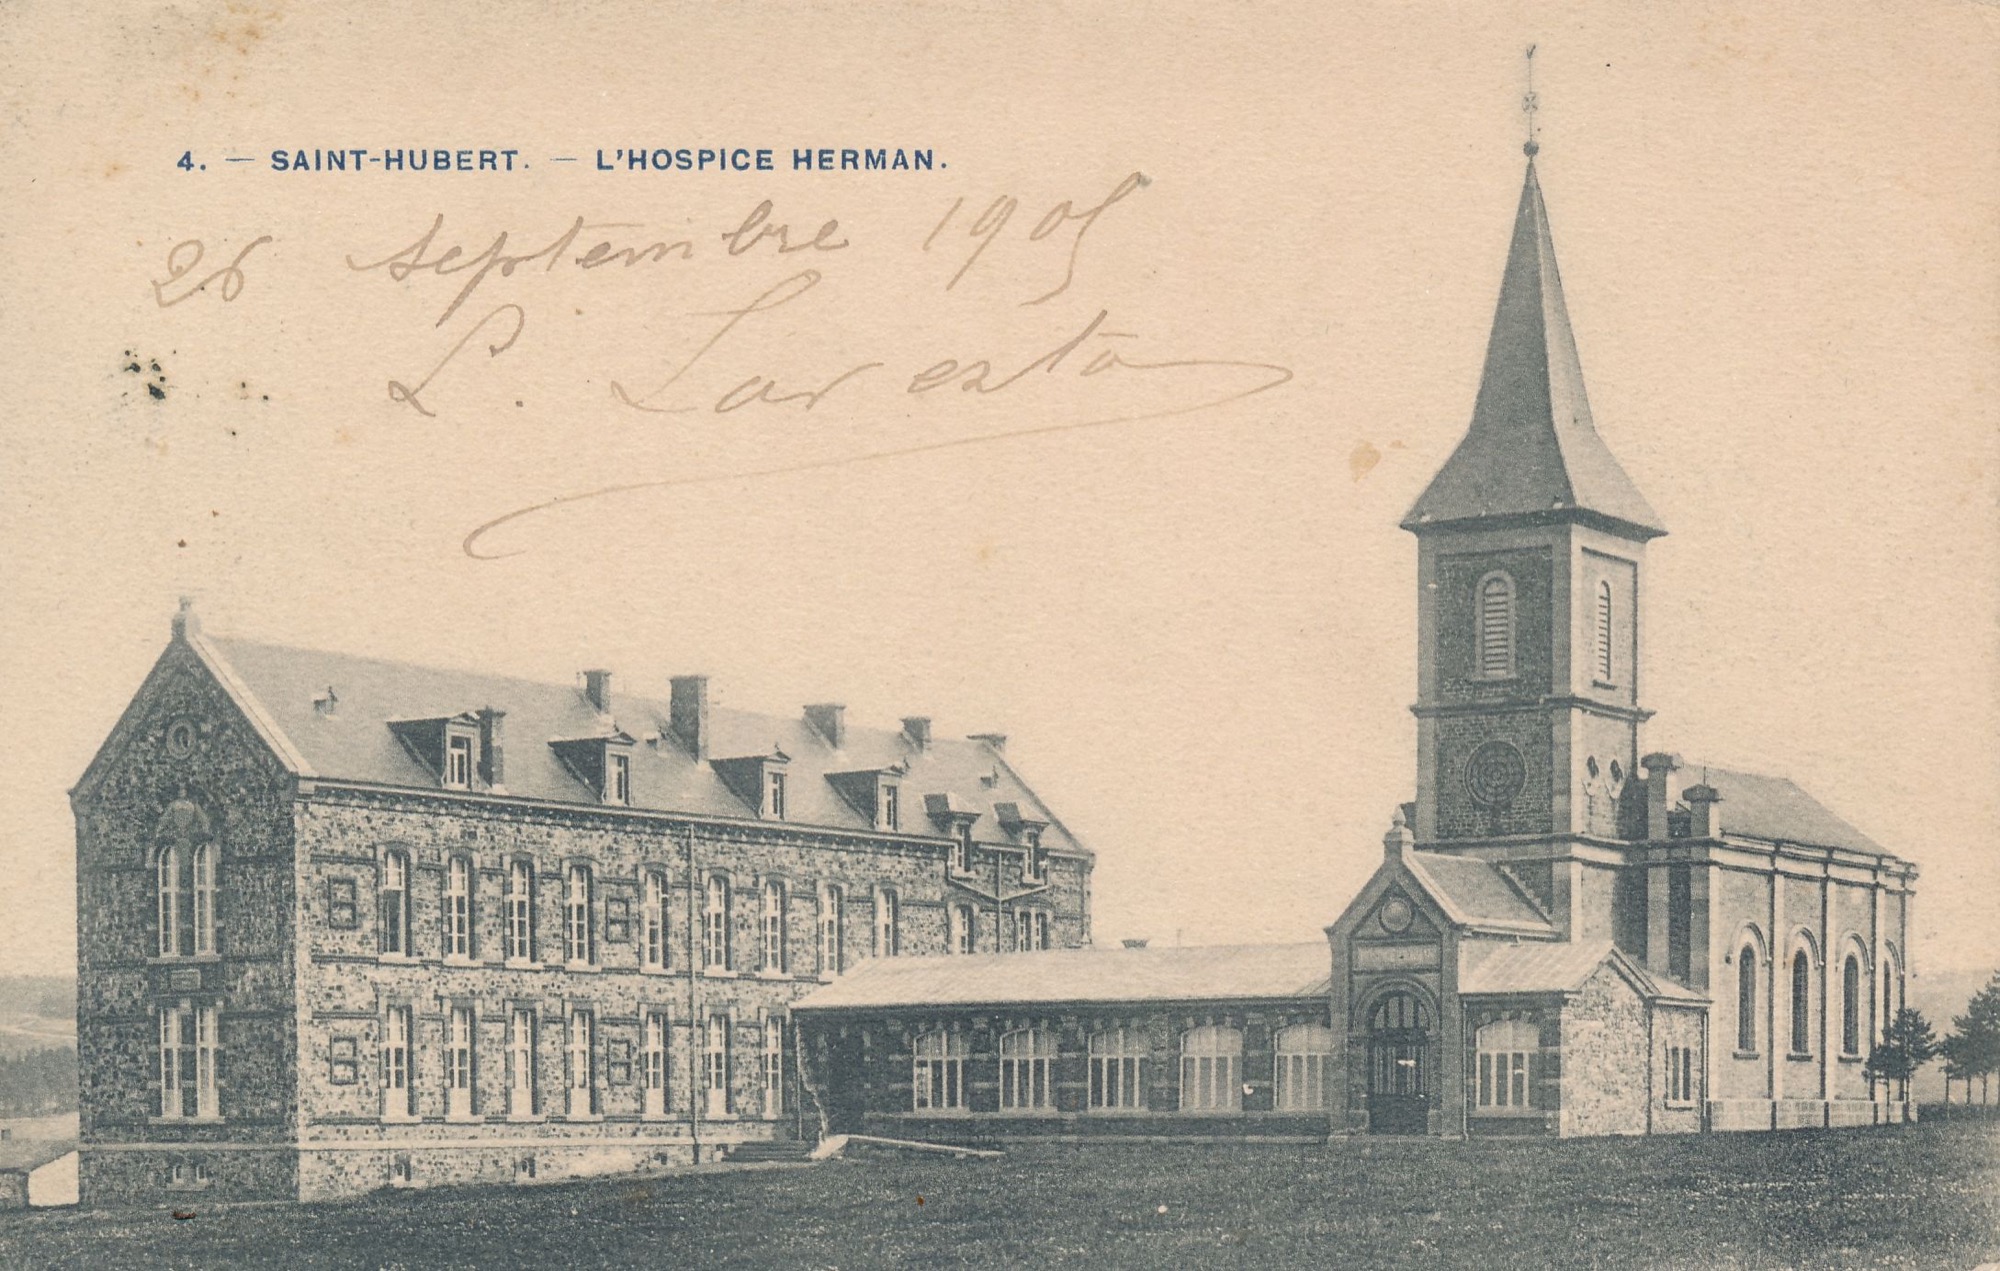 4. — SAINT-HUBERT. — L'HOSPICE HERMAN.
26 septembre 1905
L.